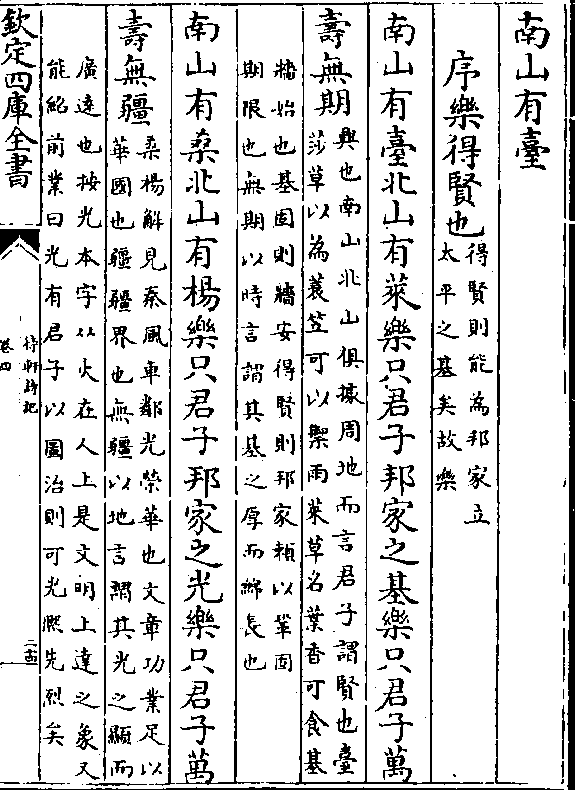 南山有臺
序樂得賢也得賢則能為邦家立
太平之基矣故樂
南山有臺北山有萊樂只君子邦家之基樂只君子萬
壽無期興也南山北山俱據周地而言君子謂賢也臺
莎草以為蓑笠可以禦雨萊草名葉香可食基
牆始也基固則牆安得賢則邦家頼以鞏固
期限也無期以時言謂其基之厚而綿長也
南山有桑北山有楊樂只君子邦家之光樂只君子萬
壽無疆桑楊解見秦風車鄰光榮華也文章功業足以
華國也疆疆界也無疆以地言謂其光之顯而
廣遠也按光本字从火在人上是文明上達之象又
能紹前業曰光有君子以圖治則可光熙先烈矣
欽定四庫全書
待軒詩記
卷四
二十四